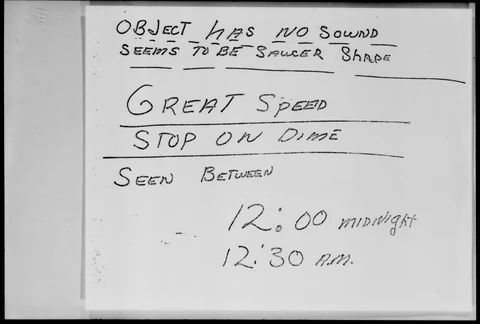 OBJECT HAS NO SOUND
SEEMS TO BE SAUCER SHAPE
GREAT SPEED
STOP ON DIME
SEEN BETWEEN
12:00 MIDNIGHT
12:30 A.M.